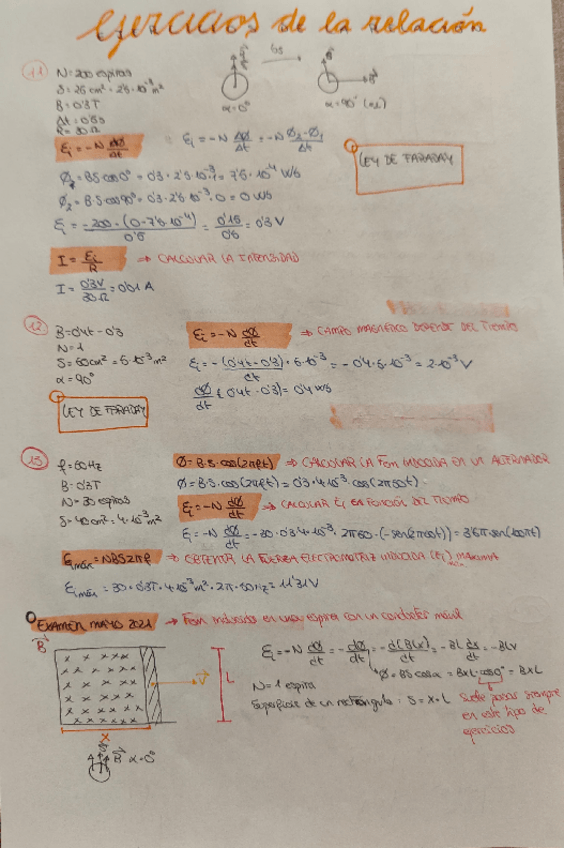 Ejercicios de la relación
11
N = 200 espiras
S = 25 cm² = 2'5·10⁻³ m²
B = 0'3T
Δt = 0'5s
R = 30 Ω
α = 0°
α = 90°
Ei = -N dØ/dt
Ei = -N ΔØ/Δt = -N Ø₂-Ø₁/Δt
LEY DE FARADAY
Ø₁ = B·S·cos0° = 0'3 · 2'5·10⁻³ · 1 = 7'5·10⁻⁴ Wb
Ø₂ = B·S·cos90° = 0'3·2'5·10⁻³·0 = 0 Wb
Ei = -200 · (0-7'5·10⁻⁴)/0'5 = 0'15/0'5 = 0'3 V
I = Ei/R → CALCULAR LA INTENSIDAD
I = 0'3V/30Ω = 0'01 A
12
B = 0'4t - 0'3
N = 1
S = 50cm² = 5·10⁻³ m²
α = 90°
LEY DE FARADAY
Ei = -N dØ/dt → CAMPO MAGNÉTICO DEPENDE DEL TIEMPO
Ei = -(0'4t-0'3)·5·10⁻³/dt = -0'4·5·10⁻³ = 2·10⁻³ V
dØ/dt (0'4t-0'3) = 0'4 Wb
13
f = 50Hz
B = 0'3T
N = 30 espiras
S = 40cm² = 4·10⁻³ m²
Ø = B·S·cos(2πft) → CALCULAR LA FEM INDUCIDA EN UN ALTERNADOR
Ø = B·S·cos(2πft) = 0'3·4·10⁻³·cos(2π50t)
Ei = -N dØ/dt → CALCULAR Ei EN FUNCIÓN DEL TIEMPO
Ei = -N dØ/dt = -30·0'3·4·10⁻³·2π50·(-sen(2π50t)) = 3'6π sen(100πt)
Eimáx = NBS2πf → OBTENER LA FUERZA ELECTROMOTRIZ INDUCIDA (Ei) MÁXIMA
Eimáx = 30·0'3T·4·10⁻³m²·2π·50Hz = 11'31V
EXAMEN MAYO 2021 → Fem inducida en una espira con un conductor móvil
B
V
L
x
B α = 0°
Ei = -N dØ/dt = -dØ/dt = -d(BLx)/dt = -BL dx/dt = -BLv
Ø = BS cosα = BxL·cos0° = BxL
N = 1 espira
Superficie de un rectángulo: S = x·L
Suele pasar siempre
en este tipo de
ejercicios